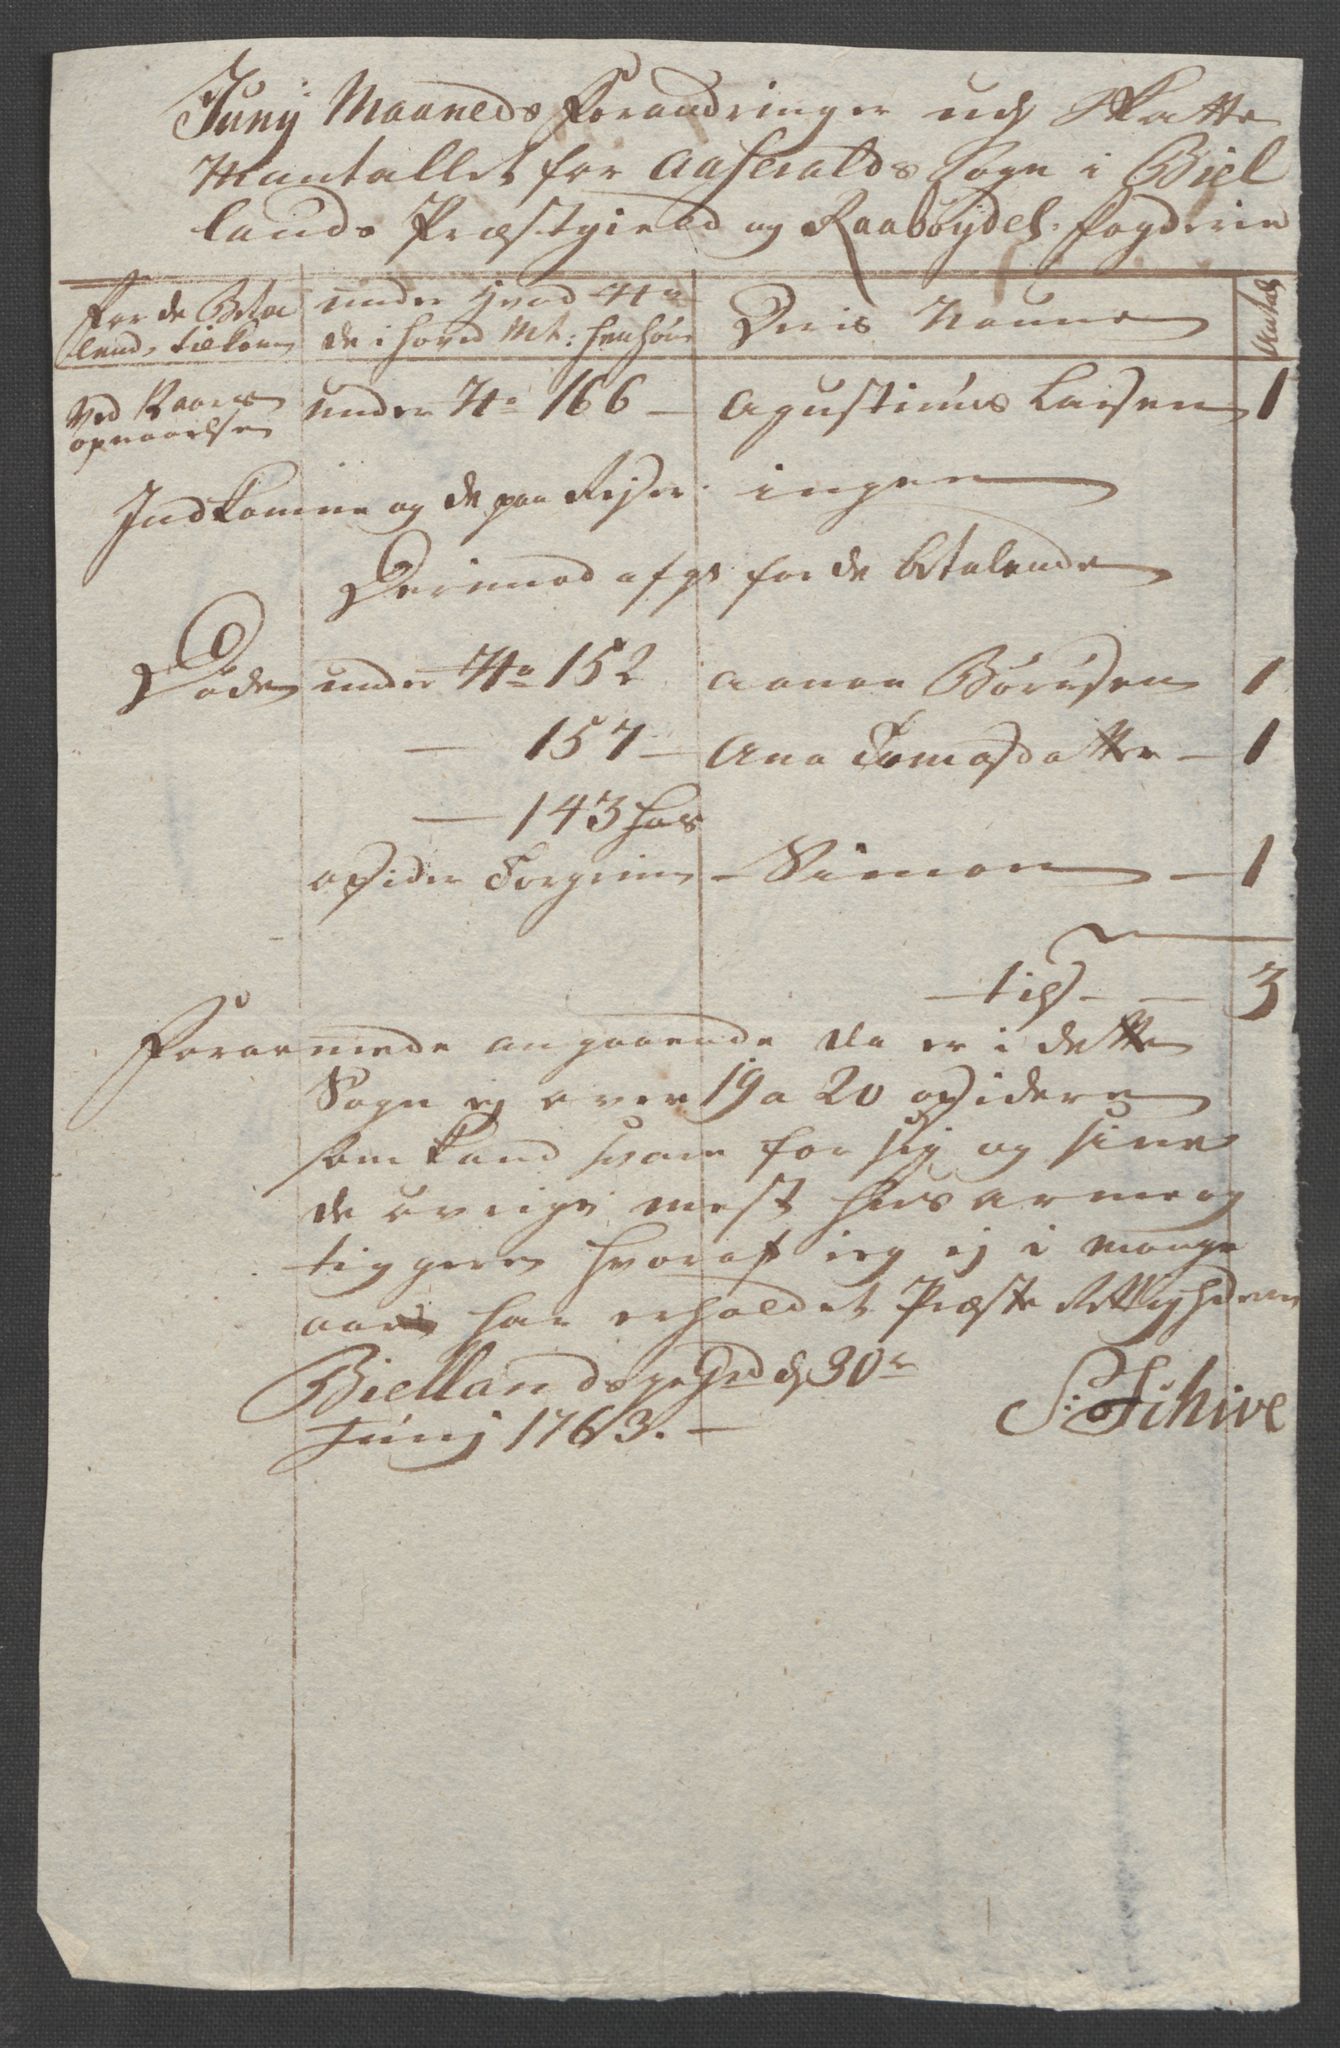 Junij Maaneds Forandringer udj Skatte
Mantallet for Aaseralds Sogn i Biel
lands Præstgield og Raabøydel. fogderie
For de Beta
lende tilkom
under hvad No
de i hoved Mt: henhøre
Deris Naune
Antal
Ved 12 aars
opnaaelse
under No 166 — Agustinus Larsen 1
Indkomne og de paa Rejser. ingen
Derimod afgr for de betalende
Døde under No 152 Aanon Børresen 1
— 157 — Ana Tomasdatter — 1
— 143 hos
opsider Torgrim — Simon — 1
— til — — 3
Forarmede angaaende da er i dette
Sogn ej over 19 a 20 opsidere
som kand svare for sig og sine
de øvrige mest hus arme og
tiggere hvoraf ieg ej i mange
aar har erholdet Præste Rettigheden
Biellands pr Grd d 30te
Junij 1763. —
S: Schive